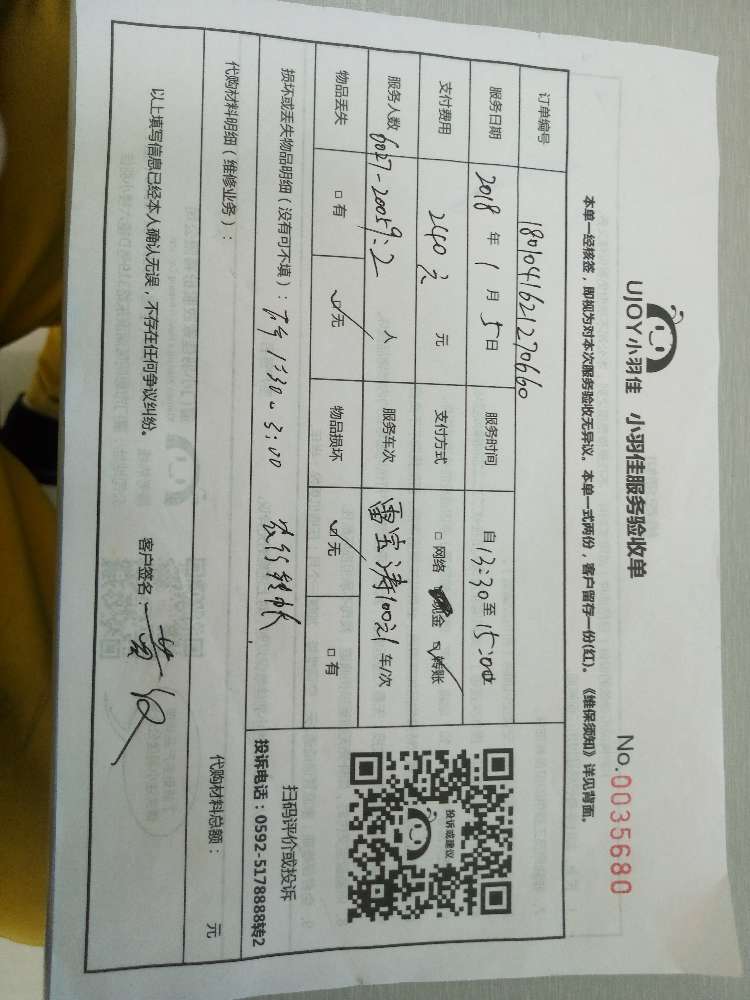 UJOY小羽佳 小羽佳服务验收单
No.0035680
本单一经核签，即视为对本次服务验收无异议。本单一式两份，客户留存一份(红)。《维保须知》详见背面。
订单编号 1801041621270660
服务日期 2018 年 1 月 5 日 服务时间 自 13:30 至 15:00
支付费用 240元 元 支付方式 □ 网络 现金 ☑ 转账
服务人数 6027-20059:2 人 服务车次 雷宝涛100元 车/次
物品丢失 □ 有 ☑ 无 物品损坏 ☑ 无 □ 有
损坏或丢失物品明细（没有可不填）： 下午 1:30~3:00 农行转帐
代购材料明细（维修业务）： 代购材料总额： 元
投诉或建议
扫码评价或投诉
投诉电话：0592-5178888转2
以上填写信息已经本人确认无误，不存在任何争议纠纷。 客户签名：